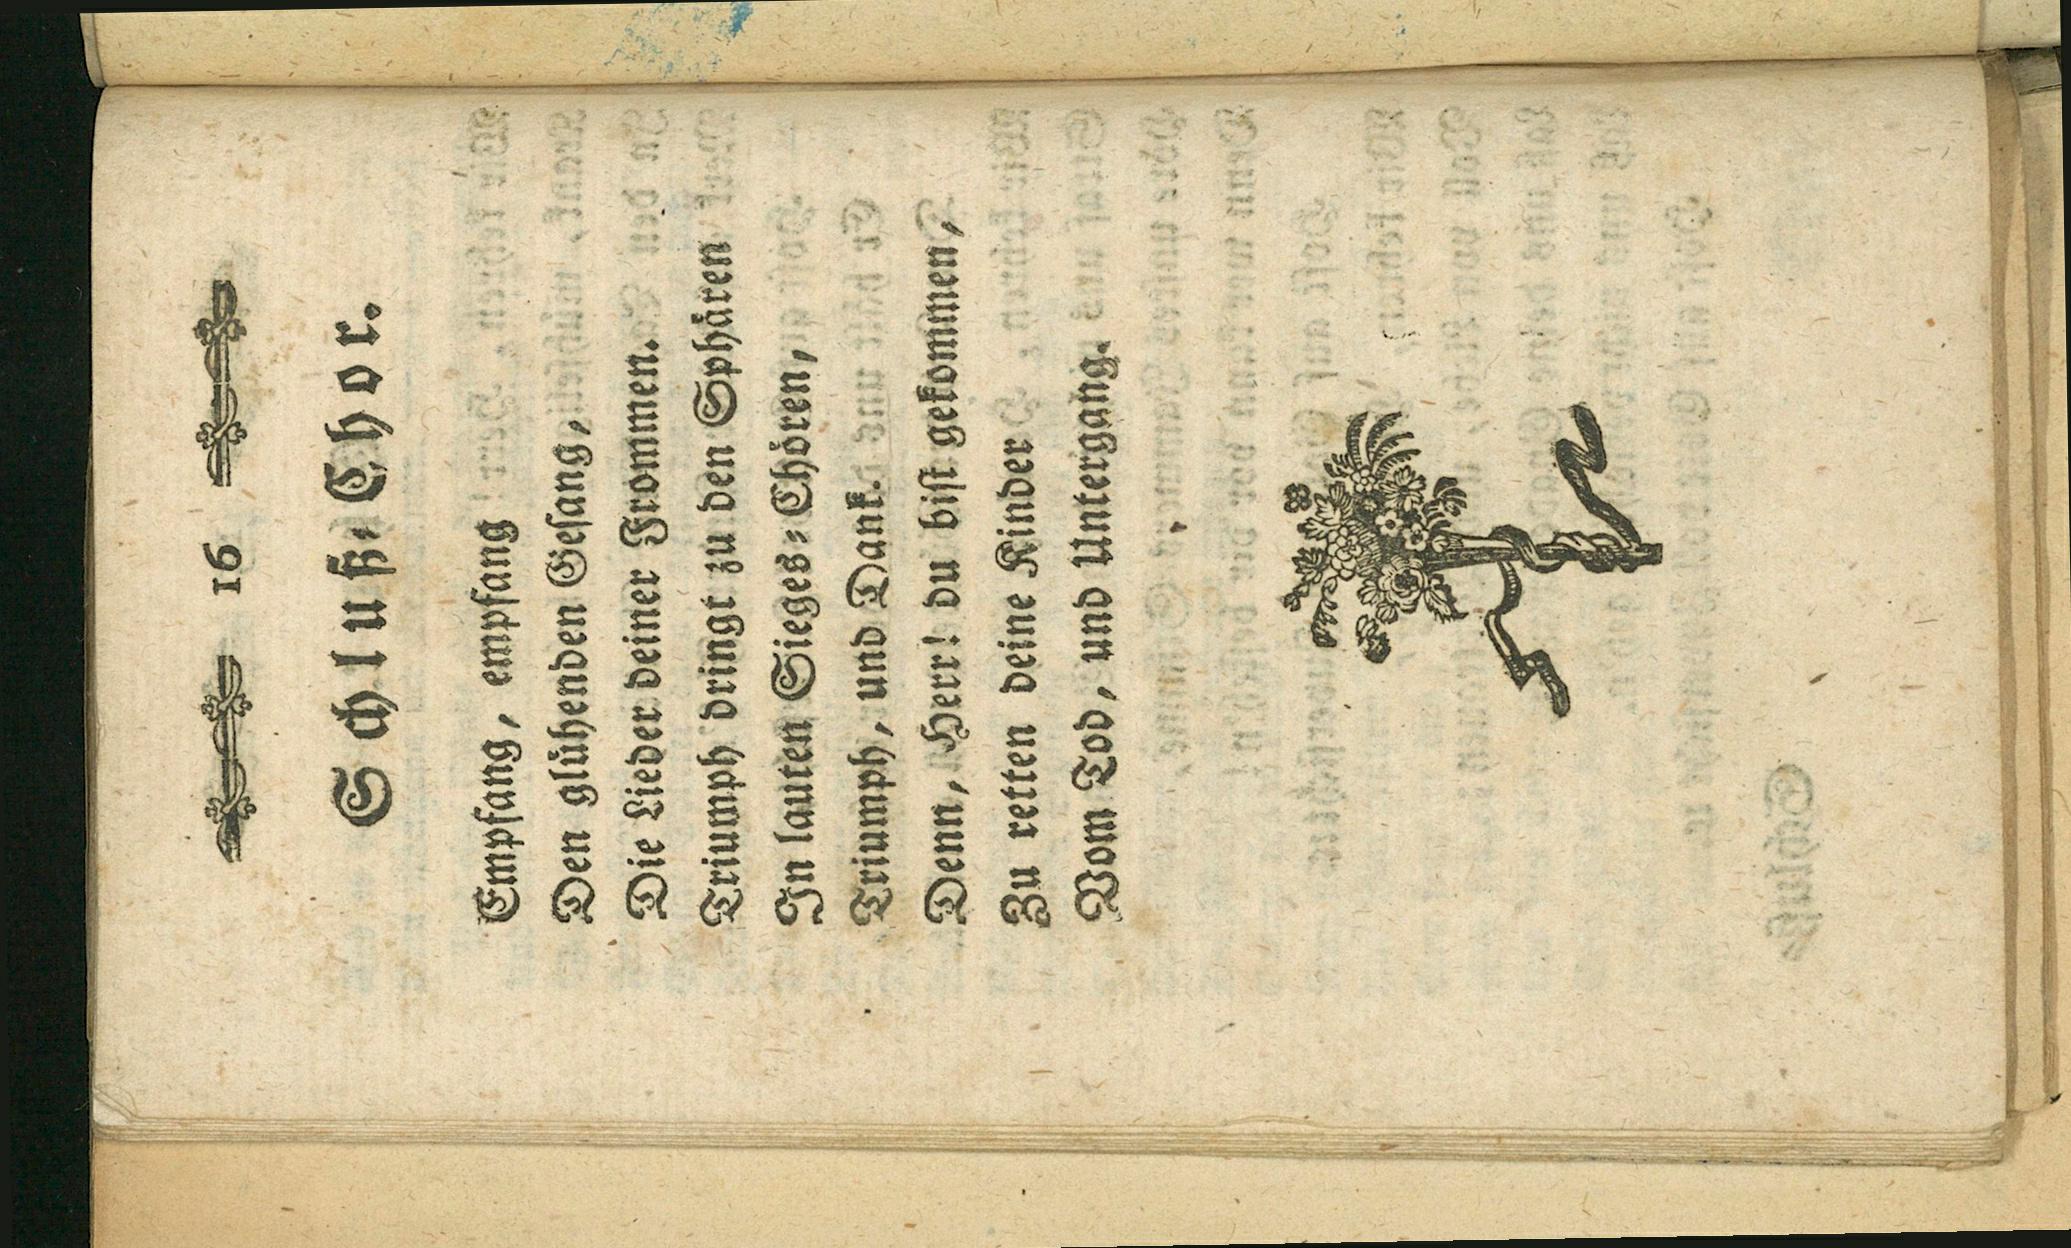 16
Schluß-Chor.
Empfang, empfang
Den glühenden Gesang,
Die Lieder deiner Frommen.
Triumph dringt zu den Sphären
In lauten Sieges-Chören,
Triumph, und Dank.
Denn, Herr! du bist gekommen,
Zu retten deine Kinder
Vom Tod, und Untergang.